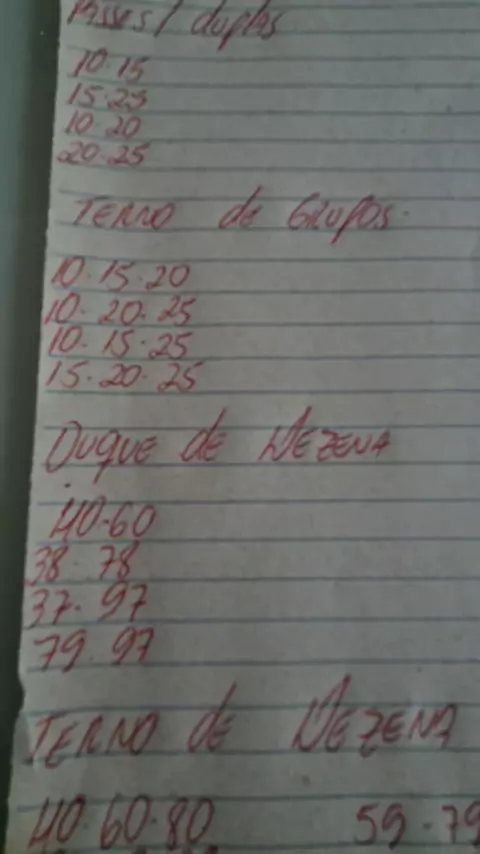 Passes/ duplas
10.15
15.25
10.20
20.25
TERNO de GRUPOS.
10.15.20
10.20.25
10.15.25
15.20.25
DUQUE de DEZENA
40.60
38.78
37.97
79.97
TERNO de DEZENA
40.60.80 59.79